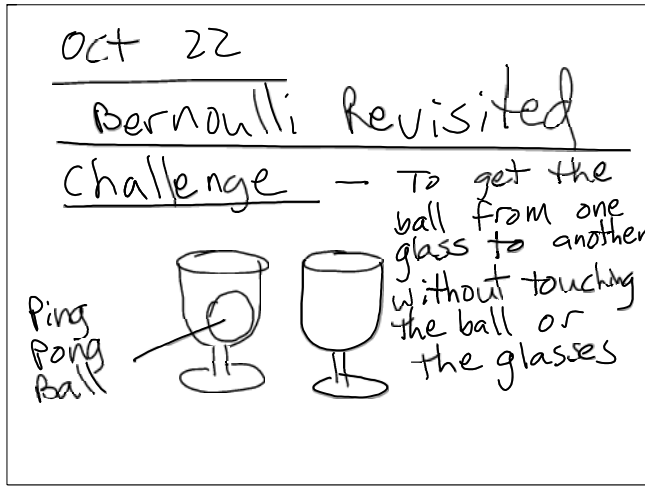 Oct 22
Bernoulli Revisited
Challenge — To get the
ball from one
glass to another
without touching
the ball or
the glasses
Ping
Pong
Ball